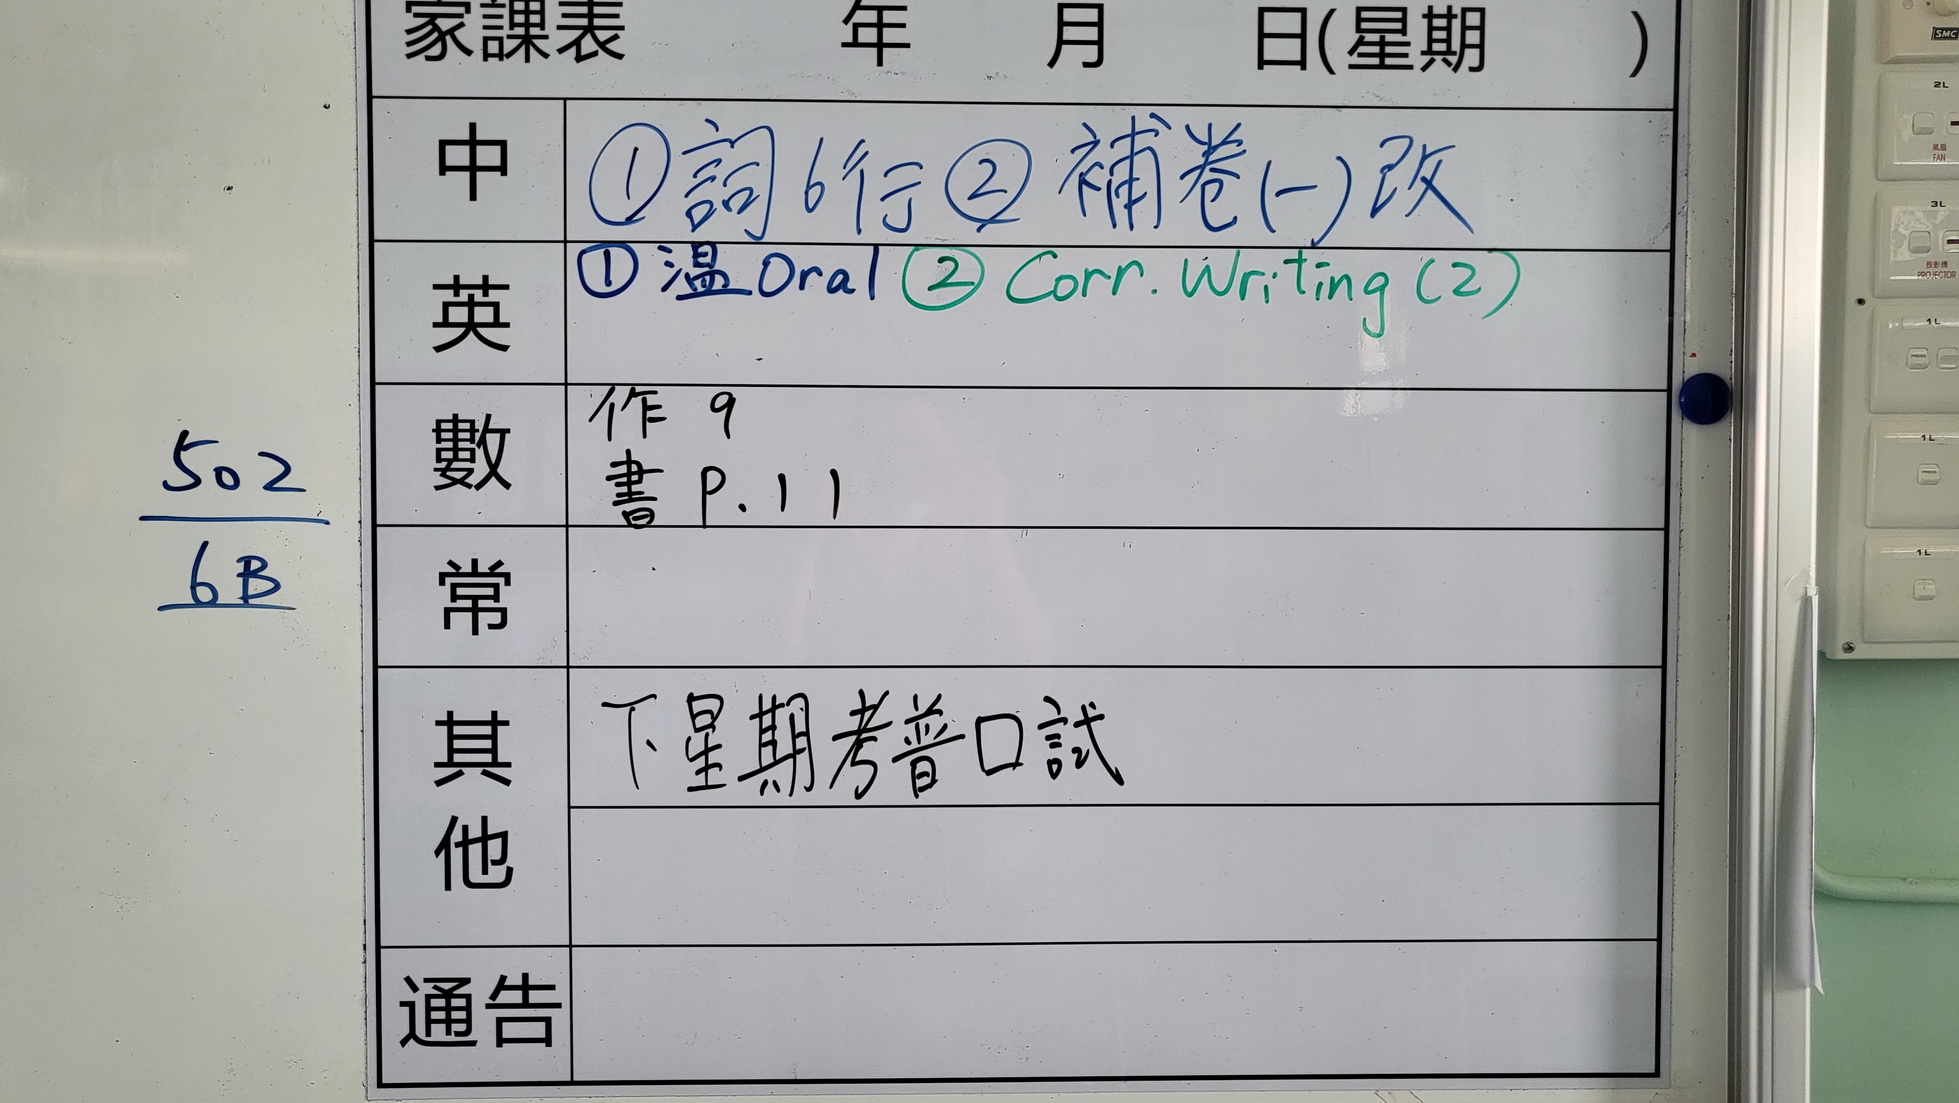 家課表 年 月 日(星期 )
中 ①詞6行②補卷(一)改
英 ①温Oral ② Corr. Writing (2)
數 作 9
書 P.11
常
其他 下星期考普口試
通告
502
6B
SMC
2L
風扇
FAN
3L
投影機
PROJECTOR
1L
1L
1L